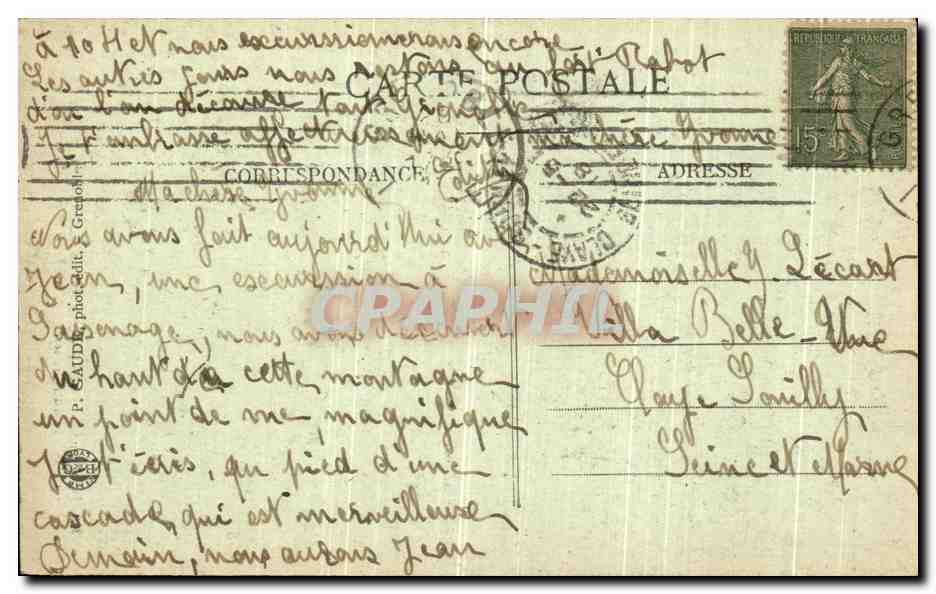 à 10 H et nous excursionnerons encore
Les autres jours nous irons au fort Rabot
d'où l'on découvre tout Grenoble
Je t'embrasse affectueusement ma chère Yvonne
CARTE POSTALE
CORRESPONDANCE
ADRESSE
REPUBLIQUE FRANÇAISE
15c
Ma chère Yvonne
Nous avons fait aujourd'hui av
Jean, une excursion à
Sassenage, nous avons découvert
du haut de cette montagne
un point de vue, magnifique
Je t'écris, au pied d'une
cascade, qui est merveilleuse
Demain, nous aurons Jean
Mademoiselle Y. Lécart
Villa Belle-Vue
Claye Souilly
Seine et Marne
P. GAUDE, phot. édit. Grenoble
CLAYE-SOUILLY
CPAPHIL